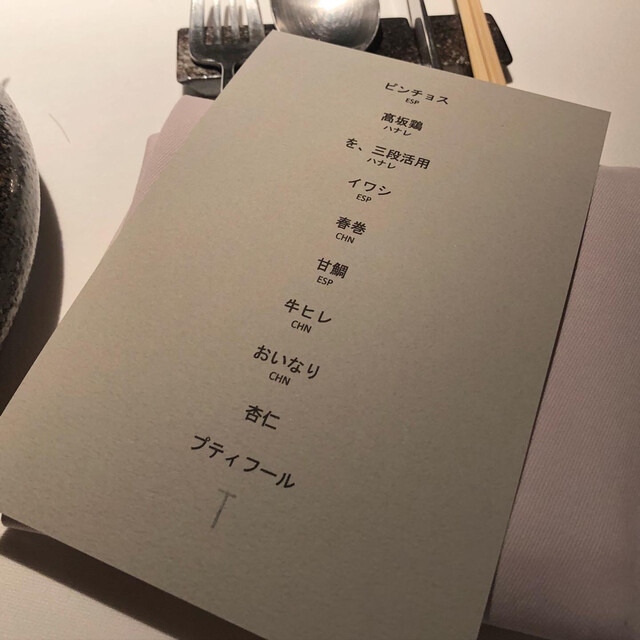 ピンチョス
ESP
高坂鶏
ハナレ
を、三段活用
ハナレ
イワシ
ESP
春巻
CHN
甘鯛
ESP
牛ヒレ
CHN
おいなり
CHN
杏仁
プティフール
T